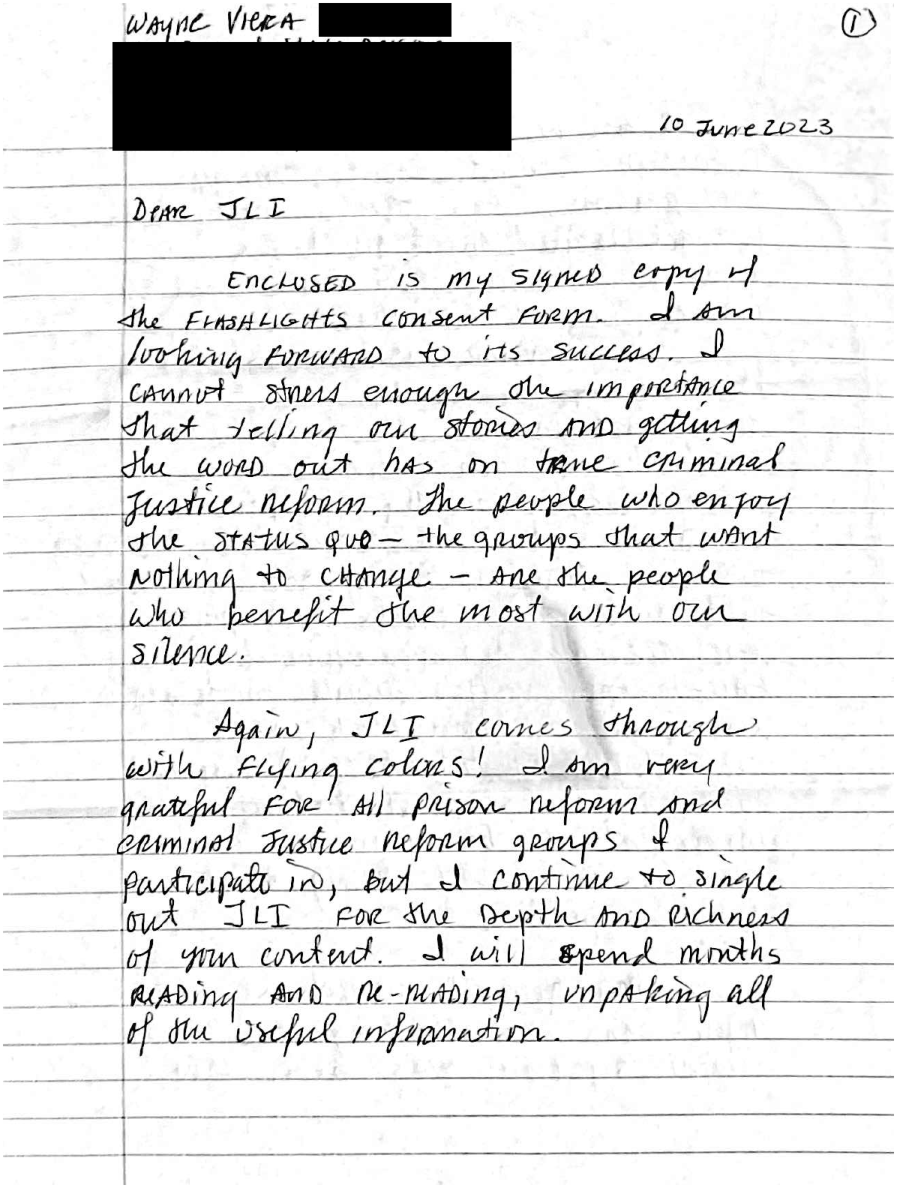 Wayne Viera
①
10 June 2023
Dear JLI
Enclosed is my signed copy of
the Flashlights consent form. I am
looking forward to its success. I
cannot stress enough the importance
that telling our stories and getting
the word out has on true criminal
justice reform. The people who enjoy
the status quo — the groups that want
nothing to change — are the people
who benefit the most with our
silence.
Again, JLI comes through
with flying colors! I am very
grateful for all prison reform and
criminal justice reform groups I
participate in, but I continue to single
out JLI for the depth and richness
of your content. I will spend months
reading and re-reading, unpaking all
of the useful information.